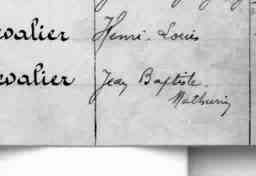 evalier Henri Louis
evalier Jean Baptiste
Mathurin